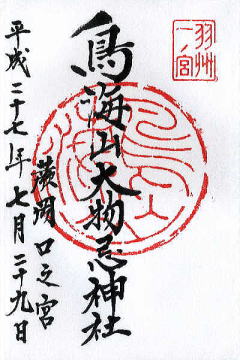 羽州
一ノ宮
鳥海山大物忌神社
蕨岡口之宮
平成二十七年七月二十九日